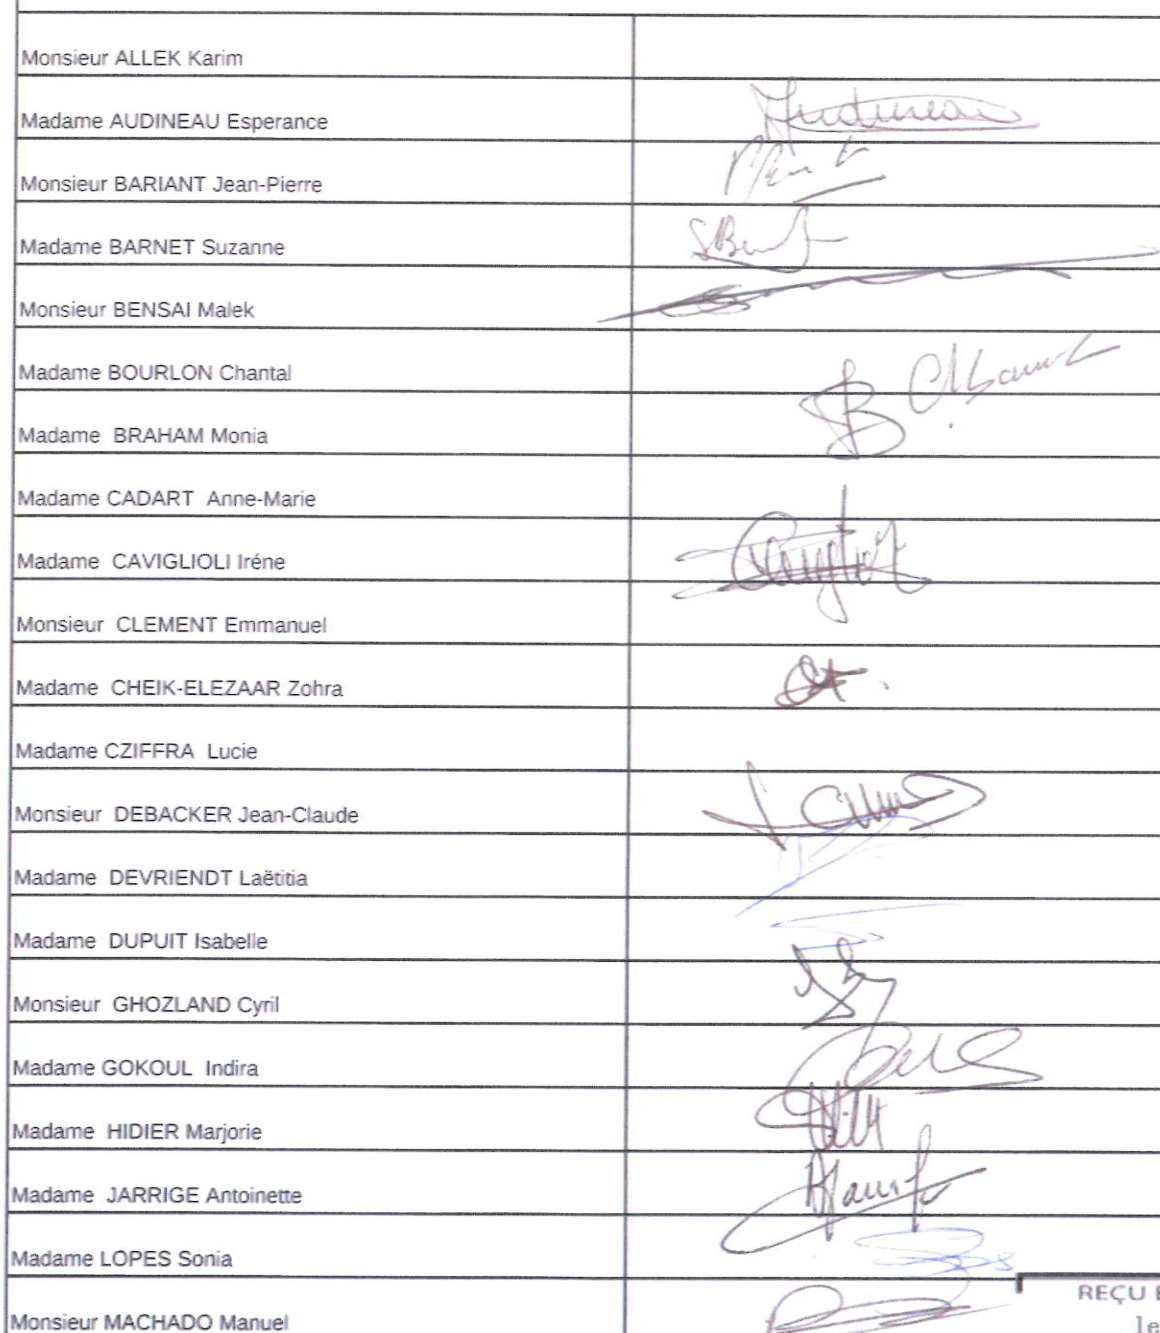 Monsieur ALLEK Karim
Madame AUDINEAU Esperance
Audineau
Monsieur BARIANT Jean-Pierre
Madame BARNET Suzanne
Monsieur BENSAI Malek
Madame BOURLON Chantal
Madame BRAHAM Monia
Madame CADART Anne-Marie
Madame CAVIGLIOLI Iréne
Monsieur CLEMENT Emmanuel
Madame CHEIK-ELEZAAR Zohra
Madame CZIFFRA Lucie
Monsieur DEBACKER Jean-Claude
Madame DEVRIENDT Laëtitia
Madame DUPUIT Isabelle
Monsieur GHOZLAND Cyril
Madame GOKOUL Indira
Madame HIDIER Marjorie
Madame JARRIGE Antoinette
Madame LOPES Sonia
REÇU
Monsieur MACHADO Manuel
le